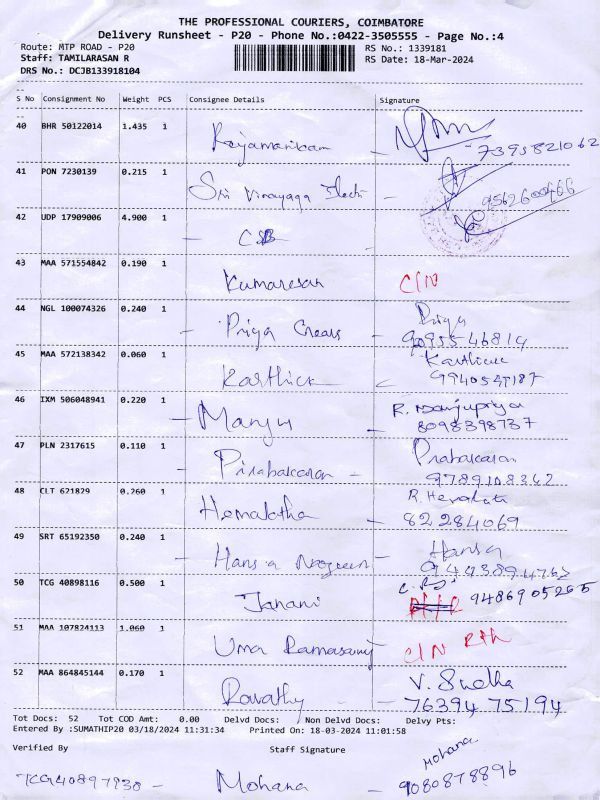 THE PROFESSIONAL COURIERS, COIMBATORE
Delivery Runsheet - P20 - Phone No.:0422-3505555 - Page No.:4
Route: MTP ROAD - P20 RS No.: 1339181
Staff: TAMILARASAN R RS Date: 18-Mar-2024
DRS No.: DCJB133918104
S No Consignment No Weight PCS Consignee Details Signature
40 BHR 50122014 1.435 1
7395821062
41 PON 7230139 0.215 1 Sri Vinayaga Electri -
9562600466
42 UDP 17909006 4.900 1 - CSB
43 MAA 571554842 0.190 1 Kumaresan C/N
44 NGL 100074326 0.240 1 - Priya Crears - Priya
9095546814
45 MAA 572138342 0.060 1 Karthick Karthick
46 IXM 506048941 0.220 1 - Manju - R. Manjupriya
8098398737
47 PLN 2317615 0.110 1 - Pirabakaran Prabakaran
9789108362
48 CLT 621829 0.260 1 Hemalatha - R. Hemalata
82284069
49 SRT 65192350 0.240 1 - Hansa - Hansa
50 TCG 40898116 0.500 1 Janani 9486905265
51 MAA 107824113 1.060 1 Uma Ramasamy C/N
52 MAA 864845144 0.170 1 Ravathy - V. Sneha
76394 75194
Tot Docs: 52 Tot COD Amt: 0.00 Delvd Docs: Non Delvd Docs: Delvy Pts:
Entered By :SUMATHIP20 03/18/2024 11:31:34 Printed On: 18-03-2024 11:01:58
Verified By Staff Signature
TCG40897930 - Mohana - Mohana
9080878896